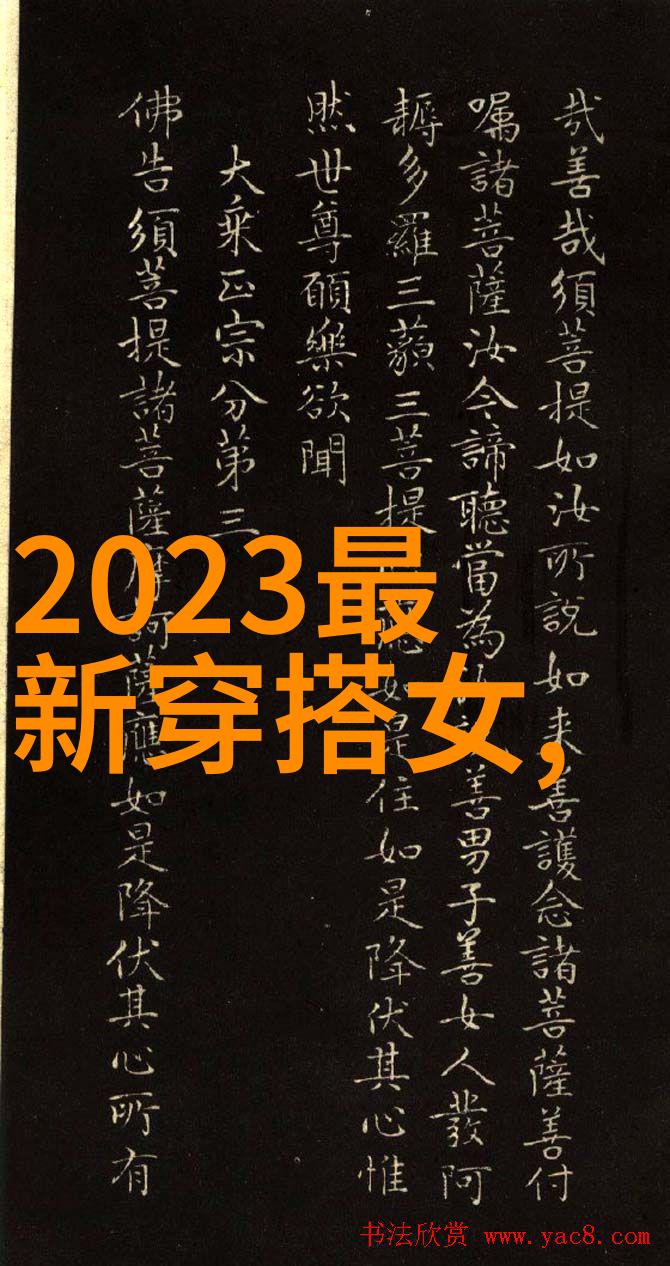 哉善哉須菩提如汝所說如来善護念諸菩薩善付
囑諸菩薩汝今諦聽當為善男子善女人發阿
耨多羅三藐三菩提應如是住如是降伏其心惟
然世尊願樂欲聞
大乘正宗分第三
佛告須菩提諸菩薩摩訶薩應如是降伏其心所有
2023最
新穿搭女,
书法欣赏 www.yac8.com